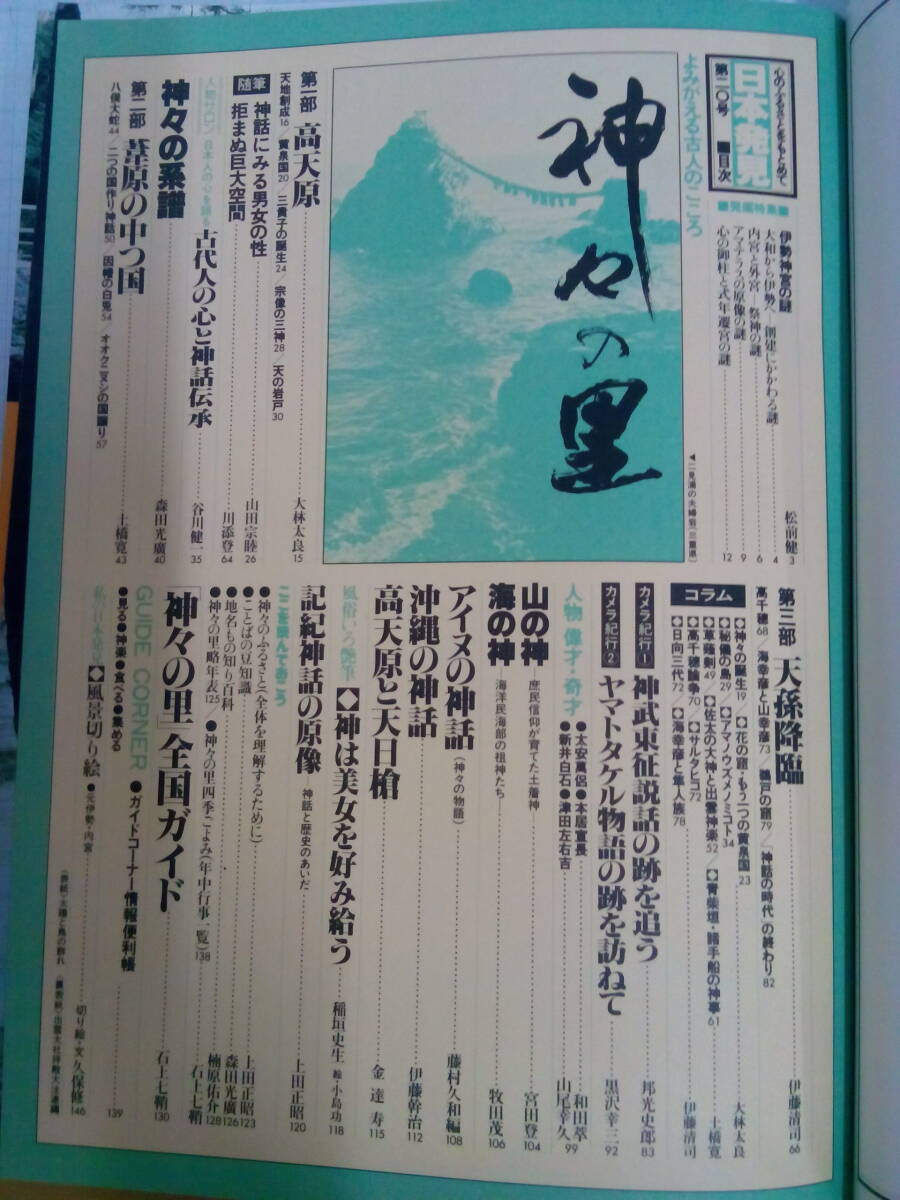 心のふるさとをもとめて
日本発見
第二〇号 ■目次
■発掘特集■
伊勢神宮の謎 松前健 3
大和から伊勢へ―創建にかかわる謎 4
内宮と外宮―祭神の謎 6
アマテラスの原像の謎 9
心の御柱と式年遷宮の謎 12
よみがえる古人のこころ
神々の里
▼二見浦の夫婦岩(三重県)
第一部 高天原 大林太良 15
天地創成16／黄泉国20／三貴子の誕生24／宗像の三神28／天の岩戸30
随筆 神話にみる男女の性 山田宗睦 26
拒まぬ巨大空間 川添登 64
人物サロン 日本人の心を語る 古代人の心と神話伝承 谷川健一 35
神々の系譜 森田光廣 40
第二部 葦原の中つ国 土橋寛 43
八俣大蛇44／二つの国作り神話50／因幡の白兎54／オオクニヌシの国譲り57
第三部 天孫降臨 伊藤清司 66
高千穂68／海幸彦と山幸彦73／鵜戸の窟79／「神話の時代」の終わり82
コラム
◆神々の誕生19／◆花の窟・もう一つの黄泉国23 大林太良
◆秘儀の島29／◆アマノウズメノミコト34
◆草薙剣49／◆佐太の大神と出雲神楽52／◆青柴垣・諸手船の神事61 土橋寛
◆高千穂論争70／◆サルタヒコ72 伊藤清司
◆日向三代72／◆海幸彦と隼人族78
カメラ紀行① 神武東征説話の跡を追う 邦光史郎 83
カメラ紀行② ヤマトタケル物語の跡を訪ねて 黒沢幸三 92
人物 偉才・奇才 ●太安真侶●本居宣長 和田萃
●新井白石●津田左右吉 山尾幸久 99
山の神 庶民信仰が育てた土着神 宮田登 104
海の神 海洋民海部の祖神たち 牧田茂 106
アイヌの神話(神々の物語) 藤村久和編 108
沖縄の神話 伊藤幹治 112
高天原と天日槍 金達寿 115
風俗いろ艶筆 ◆神は美女を好み給う 稲垣史生 絵・小島功 118
記紀神話の原像 神話と歴史のあいだ 上田正昭 120
ここを読んでおこう
●神々のふるさと(全体を理解するために) 上田正昭 123
●ことばの豆知識 森田光廣 126
●地名もの知り百科 楠原佑介 128
●神々の里略年表125／●神々の里四季ごよみ(年中行事一覧)138 石上七鞘
「神々の里」全国ガイド 石上七鞘 130
GUIDE CORNER ●ガイドコーナー情報便利帳 139
●見る●神楽●食べる●集める
私の日本発見 ◆風景切り絵 ●元伊勢・内宮 切り絵・文 久保修 146